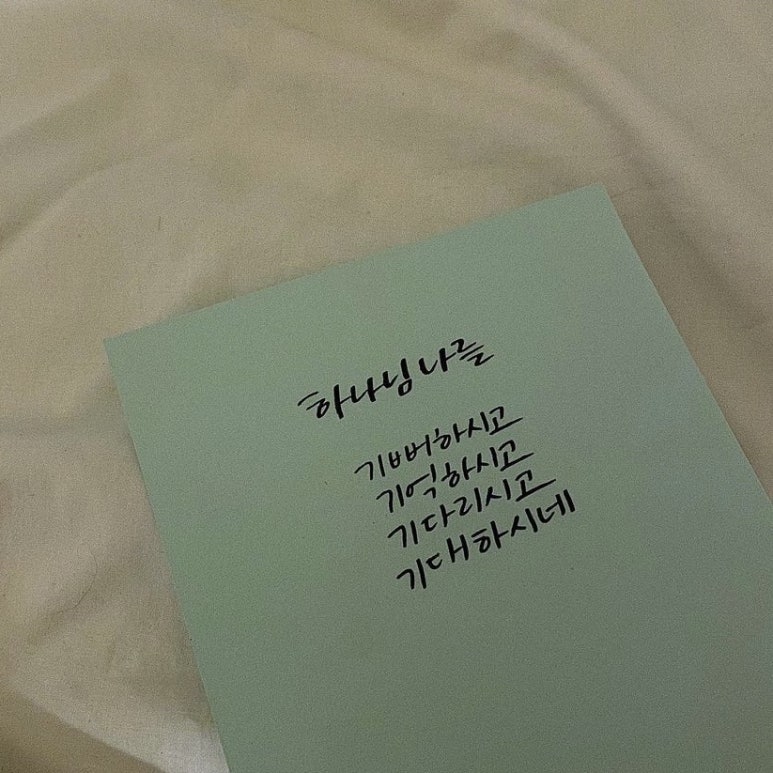 하나님 나를
기뻐하시고
기억하시고
기다리시고
기대하시네